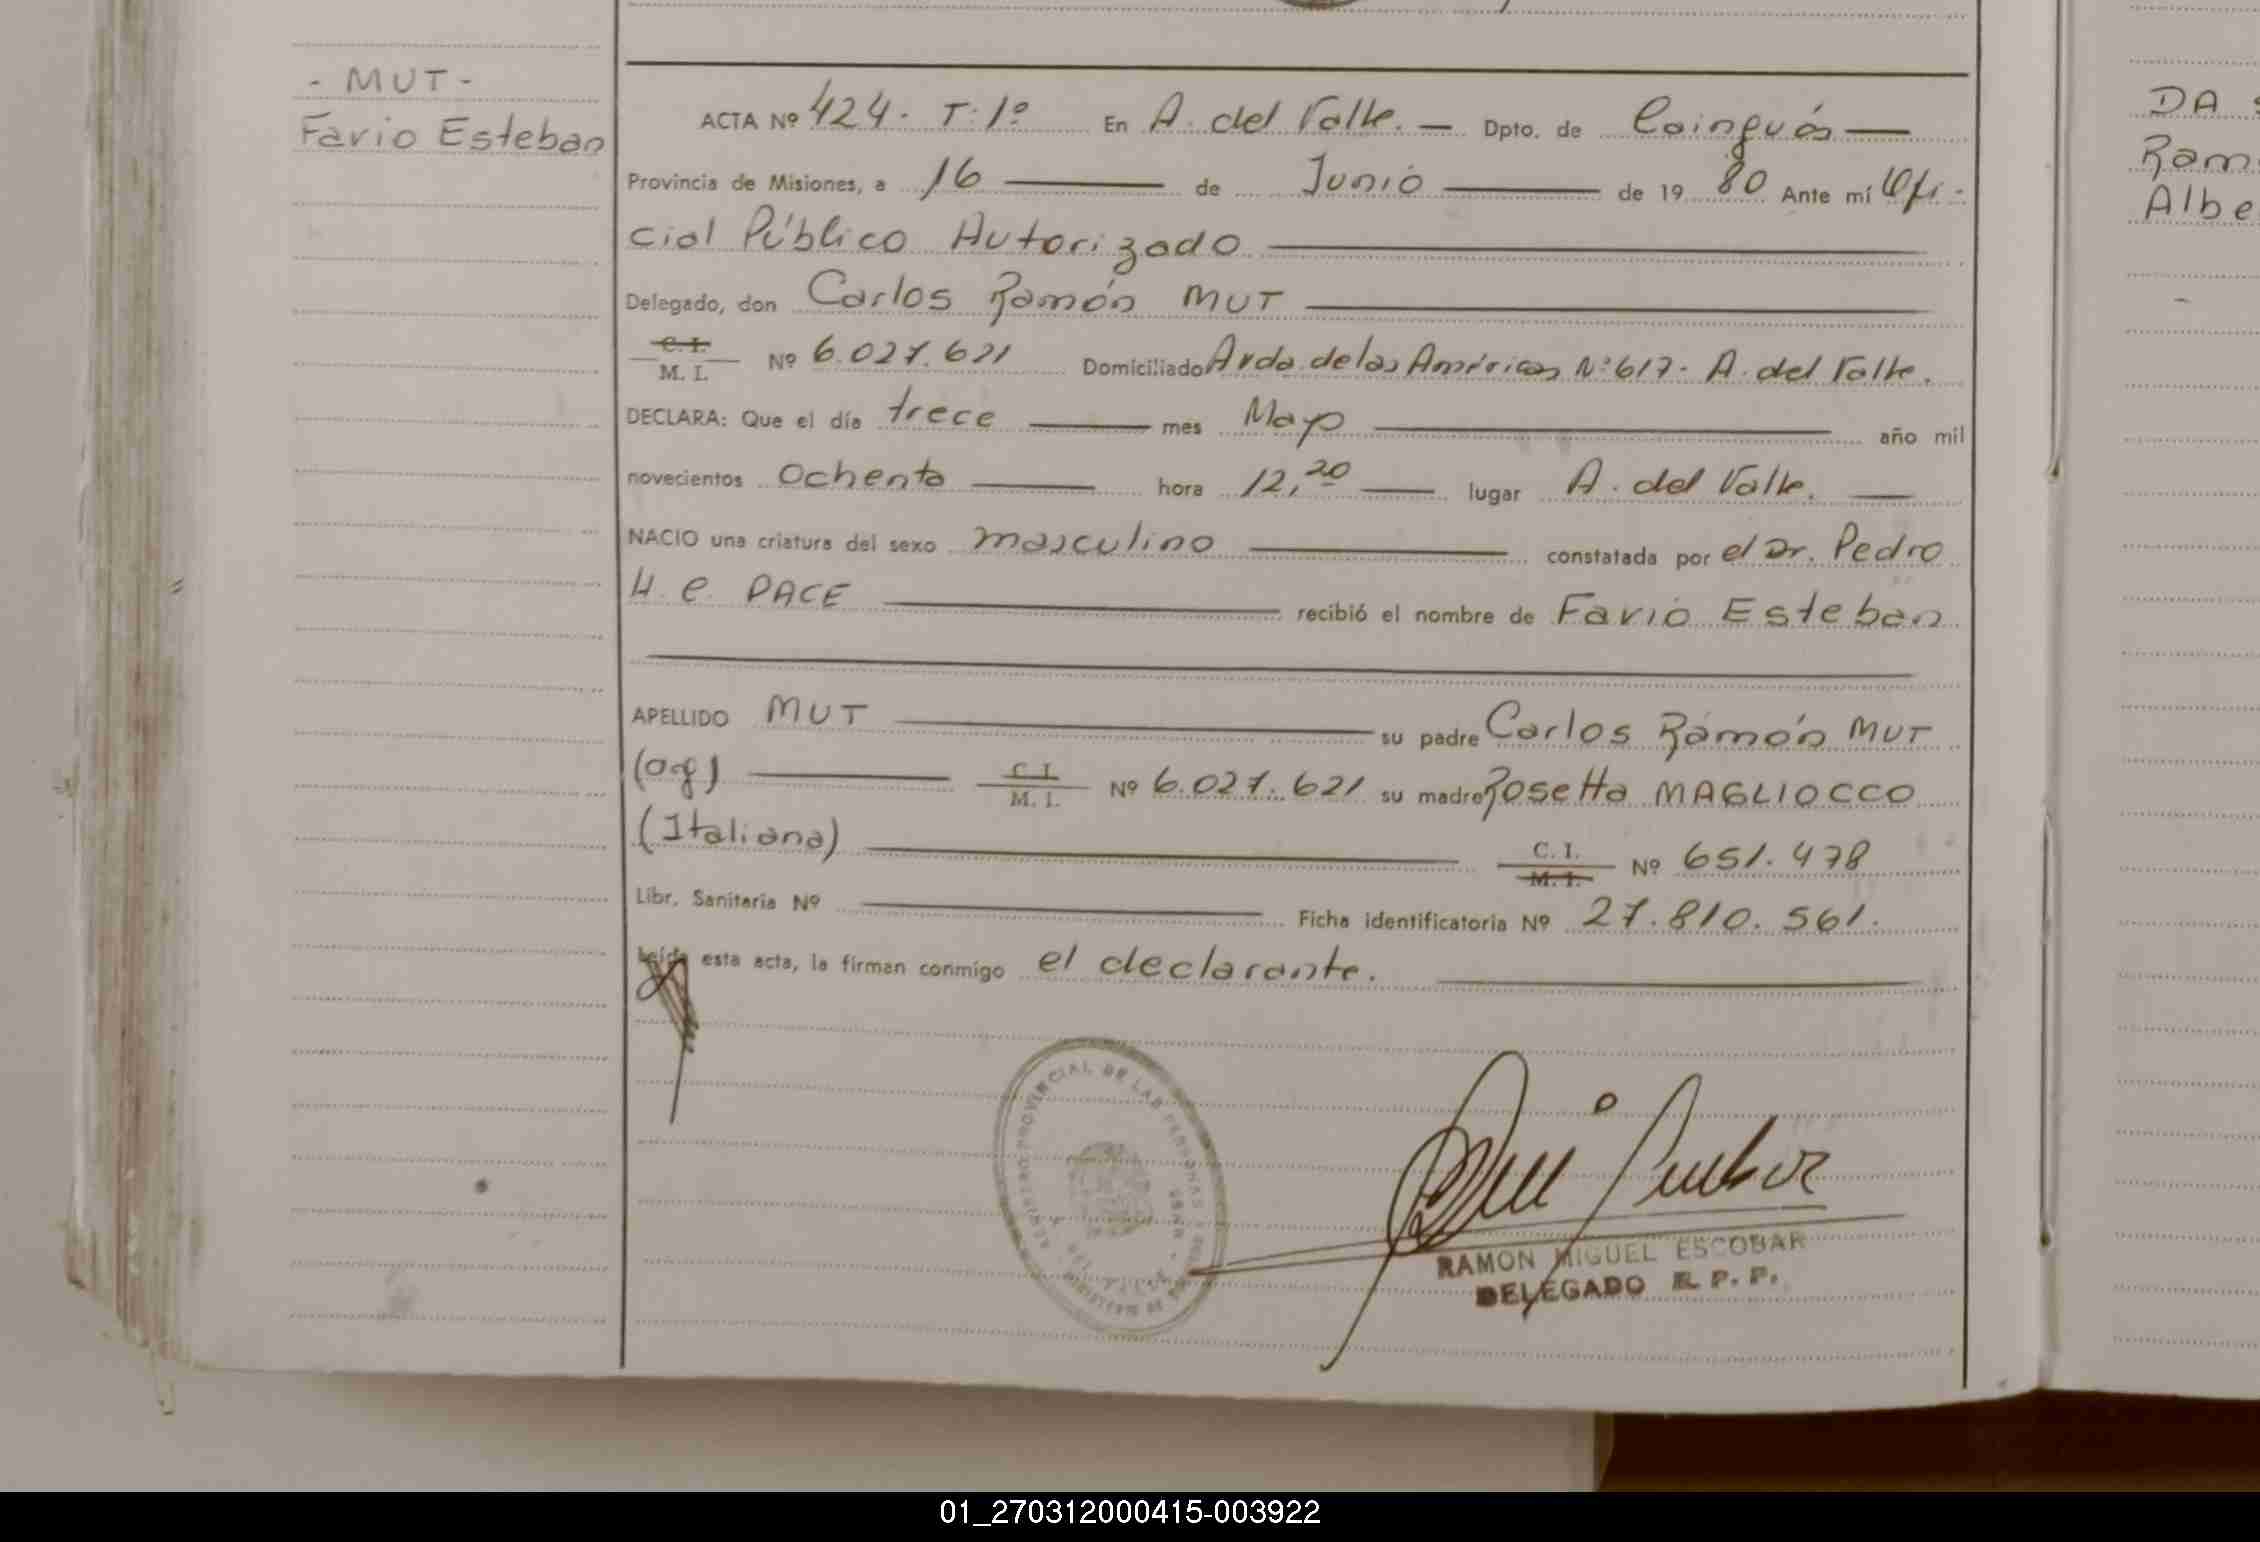 - MUT -
Favio Esteban
ACTA Nº 424. T: 1º En A. del Valle. — Dpto. de Cainguás —
Provincia de Misiones, a 16 — de Junio — de 19 80 Ante mí Ofi-
cial Público Autorizado —
Delegado, don Carlos Ramón MUT —
C. I.
M. I. Nº 6.027.621 Domiciliado Avda. de las Américas Nº 617. A. del Valle.
DECLARA: Que el día trece — mes Mayo — año mil
novecientos Ochenta — hora 12,20 — lugar A. del Valle. —
NACIO una criatura del sexo masculino — constatada por el Dr. Pedro
H. C. PACE — recibió el nombre de Favio Esteban
APELLIDO MUT — su padre Carlos Ramón MUT
(arg) — C. I.
M. I. Nº 6.027.621 su madre Rosetta MAGLIOCCO
(Italiana) — C. I.
M. I. Nº 651.478
Libr. Sanitaria Nº — Ficha identificatoria Nº 27.810.561.
Leída esta acta, la firman conmigo el declarante. —
PROVINCIAL DE LAS PERSONAS
RAMON MIGUEL ESCOBAR
DELEGADO R. P. P.
DA
Ram
Albe
01_270312000415-003922